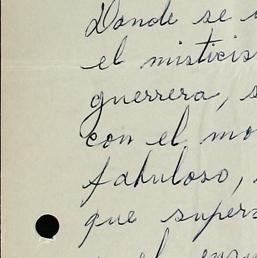 Donde se
el misticis
guerrera, s
con el mo
fabuloso,
que supera